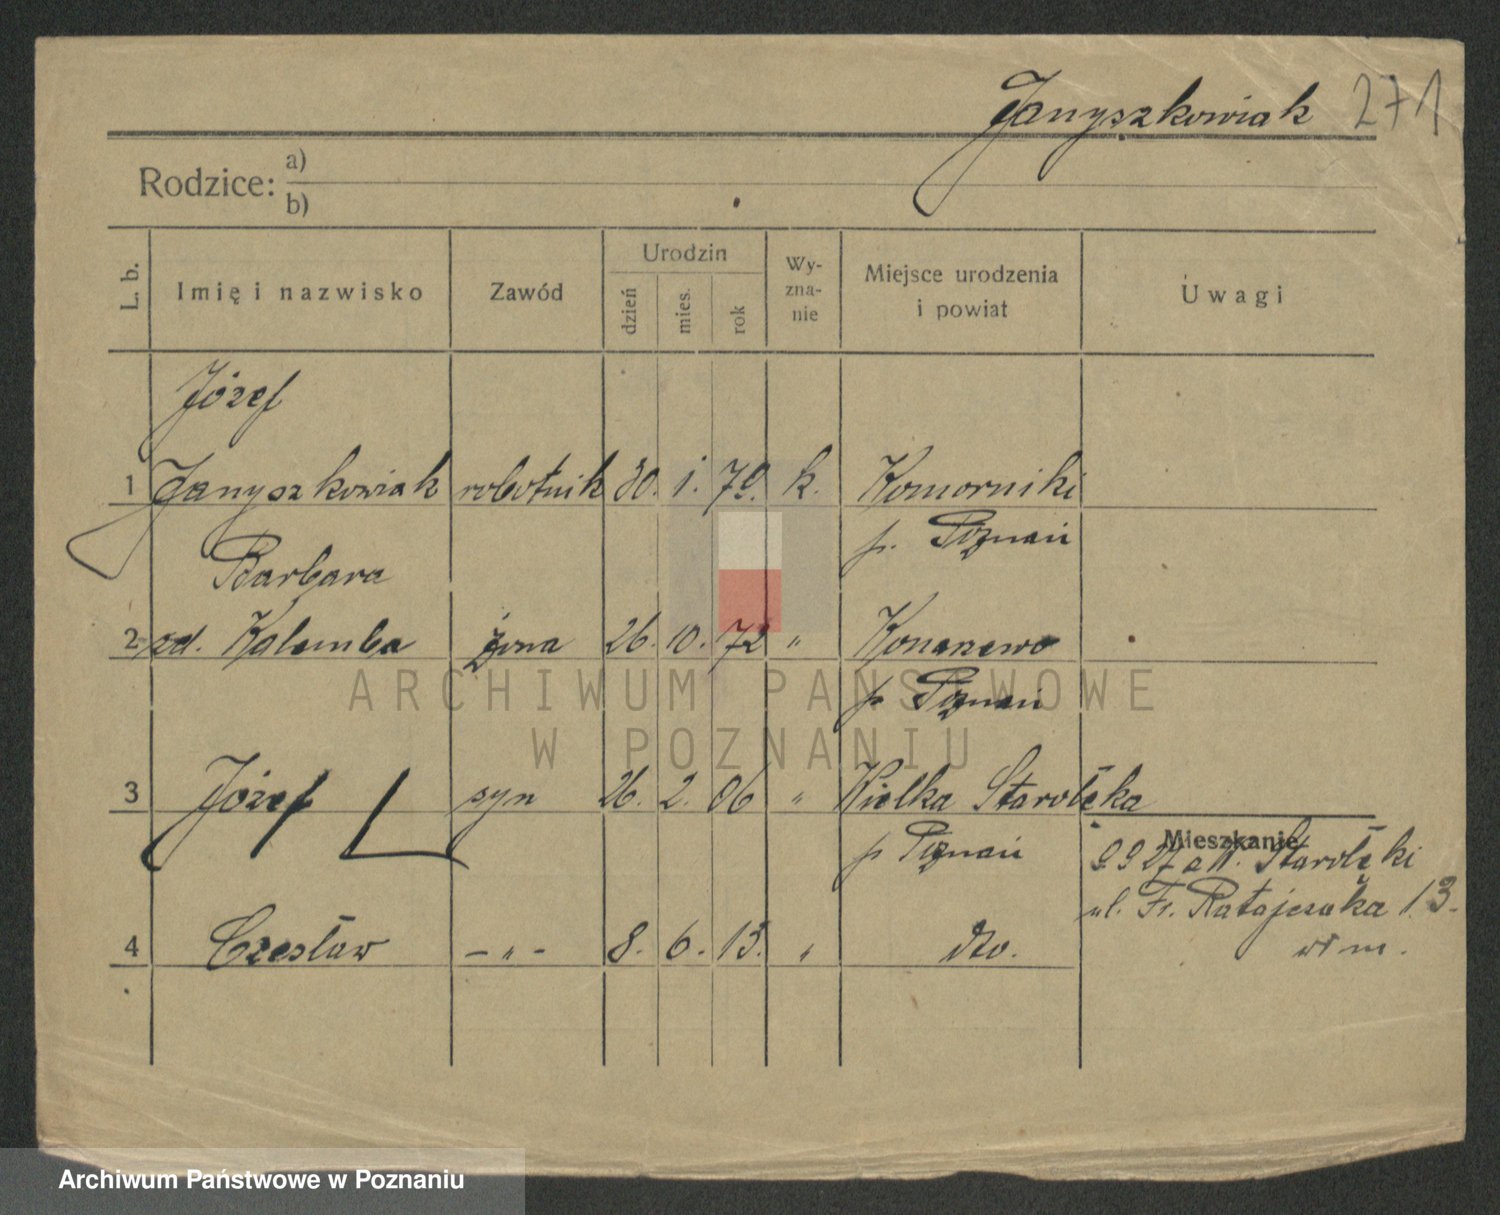 Janyszkowiak 271
Rodzice: a)
b)
L. b. Imię i nazwisko Zawód Urodzin dzień mies. rok Wy-zna-nie Miejsce urodzenia i powiat Uwagi
Józef
1 Janyszkowiak robotnik 30. 1. k. Komorniki
p. Poznań
Barbara
2 zd. Kolemba żona 26. 10. 72 " Konarzewo
p Poznań
ARCHIWUM PAŃSTWOWE
W POZNANIU
3 Józef syn 26. 2. 06 " Wielka Starołęka
p Poznań
Mieszkanie
Starołęki
ul. Fr. Ratajczaka 13.
4 Czesław - " - 8. 6. 13. " dto.
Archiwum Państwowe w Poznaniu